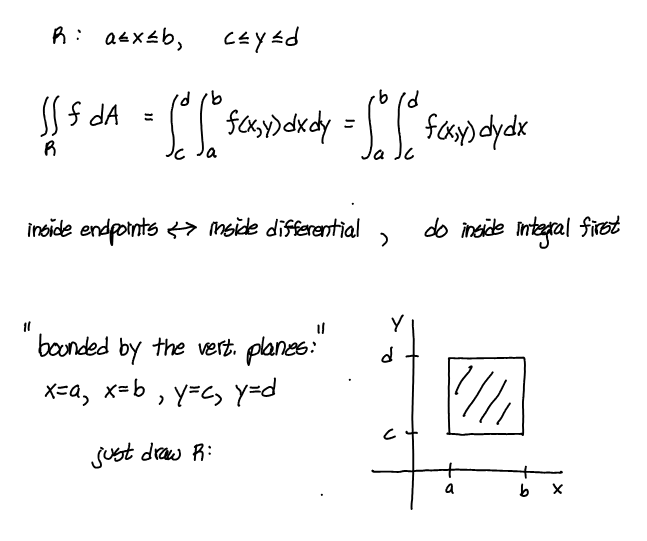 R: a≤x≤b, c≤y≤d
∬_R f dA = ∫_c^d ∫_a^b f(x,y) dx dy = ∫_a^b ∫_c^d f(x,y) dy dx
inside endpoints ↔ inside differential, do inside integral first
"bounded by the vert. planes:"
x=a, x=b, y=c, y=d
just draw R:
y
d
c
a b x